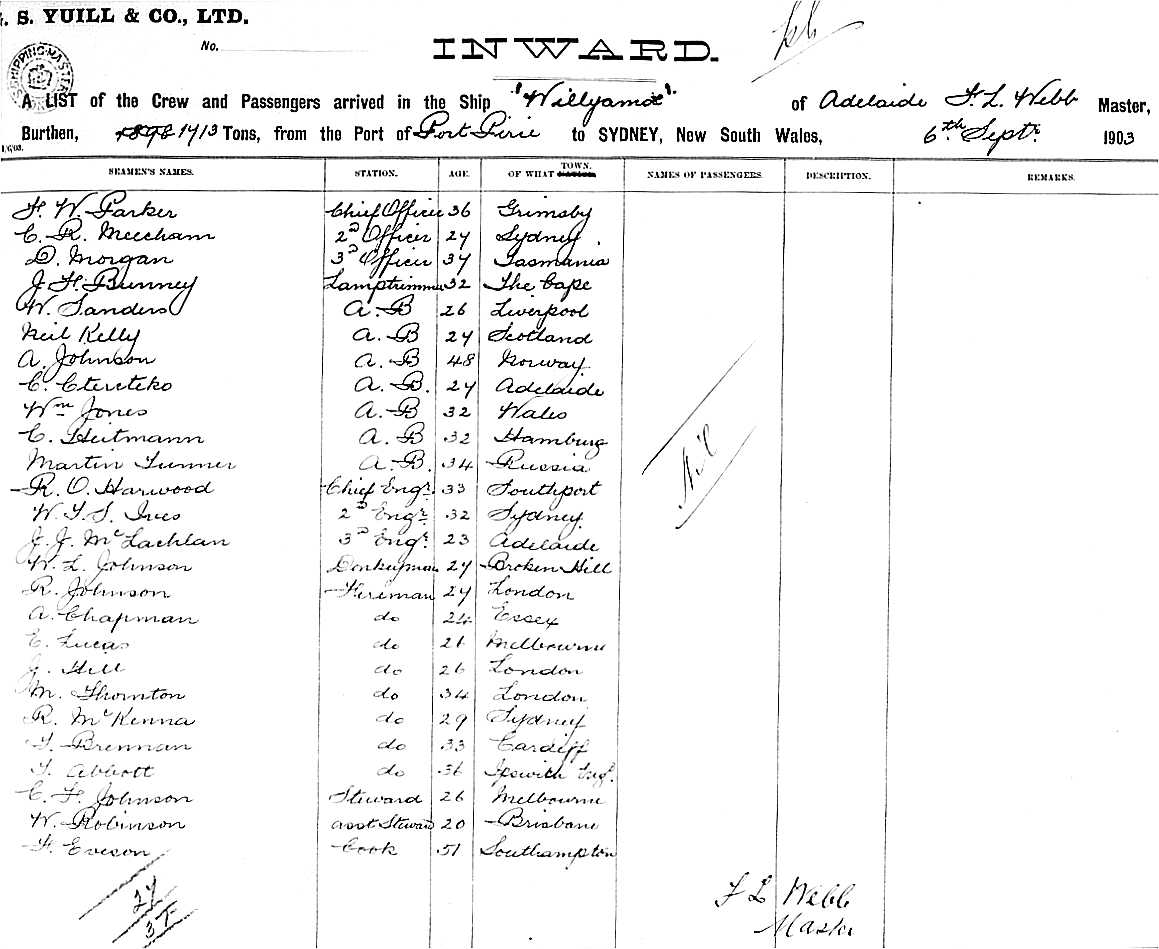 . S. YUILL & CO., LTD.
No.
INWARD.
SHIPPING MASTER
A LIST of the Crew and Passengers arrived in the Ship "Willyama" of Adelaide F. L. Webb Master,
Burthen, 1896 1713 Tons, from the Port of Port Pirie to SYDNEY, New South Wales, 6th Septr 1903
SEAMEN'S NAMES. STATION. AGE. OF WHAT TOWN. NAMES OF PASSENGERS. DESCRIPTION. REMARKS.
F. W. Parker Chief Officer 36 Grimsby
C. R. Meecham 2D Officer 27 Sydney
D. Morgan 3D Officer 37 Tasmania
J H Bunney Lamptrimmer 32 The Cape
W. Sanders A.B 26 Liverpool
Neil Kelly A.B 27 Scotland
A. Johnson A.B 48 Norway
C. A.B. 27 Adelaide
Wm Jones A.B 32 Wales
C. Heitmann A.B 32 Hamburg
Martin A.B. 34 Russia
R. O. Harwood Chief Engr 33 Southport
W. T. S. Ives 2D Engr 32 Sydney
J. J. McLachlan 3D Engr 23 Adelaide
W. L. Johnson Donkeyman 27 Broken Hill
R. Johnson Fireman 27 London
A. Chapman do 24 Essex
E. Lucas do 26 Melbourne
J. Hill do 26 London
M. Thornton do 34 London
R. McKenna do 29 Sydney
T. Brennan do 33 Cardiff
T. Abbott do 36 Ipswich Engd
C. F. Johnson Steward 26 Melbourne
W. Robinson asst Steward 20 Brisbane
F. Eveson Cook 51 Southampton
Nil
27
F L Webb
Master